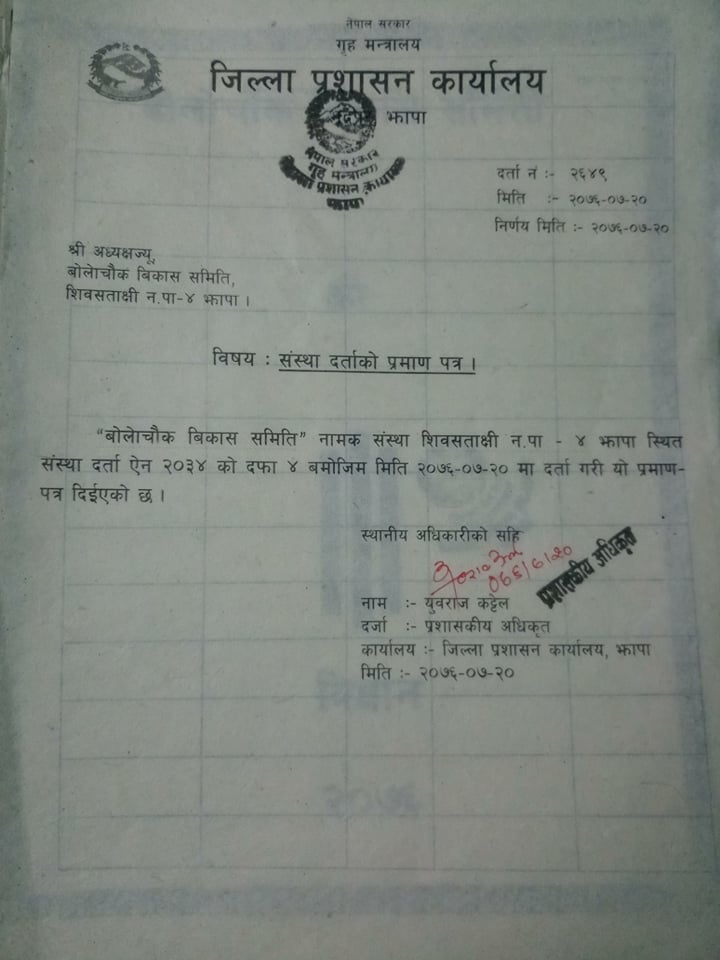 नेपाल सरकार
गृह मन्त्रालय
जिल्ला प्रशासन कार्यालय
झापा
नेपाल सरकार
गृह मन्त्रालय
जिल्ला प्रशासन कार्यालय
झापा
दर्ता नं :- २६४९
मिति :- २०७६-०७-२०
निर्णय मिति :- २०७६-०७-२०
श्री अध्यक्षज्यू,
बोलेाचौक बिकास समिति,
शिवसताक्षी न.पा-४ झापा ।
विषय : संस्था दर्ताको प्रमाण पत्र ।
“बोलेाचौक बिकास समिति” नामक संस्था शिवसताक्षी न.पा - ४ झापा स्थित
संस्था दर्ता ऐन २०३४ को दफा ४ बमोजिम मिति २०७६-०७-२० मा दर्ता गरी यो प्रमाण-
पत्र दिईएको छ ।
स्थानीय अधिकारीको सहि
प्रशासकीय अधिकृत
नाम :- युवराज कट्टेल
दर्जा :- प्रशासकीय अधिकृत
कार्यालय :- जिल्ला प्रशासन कार्यालय, झापा
मिति :- २०७६-०७-२०